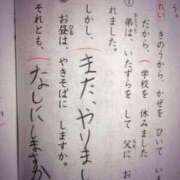 きのうから、かぜをひいてい
だから、(学校を休みました
① 弟は、いたずらをして父にお
れました。
しかし、(また、やりまし
お昼は、やきそばにしますか。
それとも、(なしにしますか